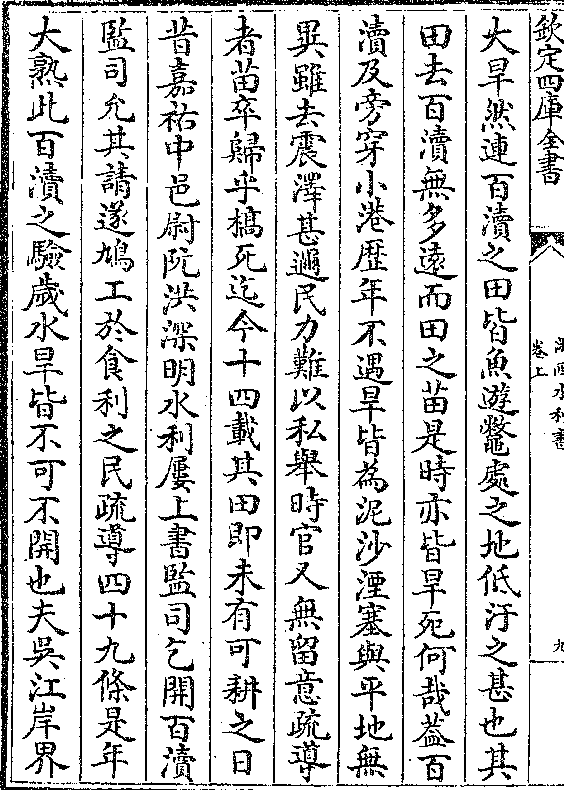 欽定四庫全書
浙西水利書
卷上
九
大旱然連百瀆之田皆魚遊鼈處之地低汙之甚也其
田去百瀆無多遠而田之苗是時亦皆旱死何哉葢百
瀆及旁穿小港歴年不遇旱皆為泥沙湮塞與平地無
異雖去震澤甚邇民力難以私舉時官又無留意疏導
者苗卒歸乎槁死迄今十四載其田即未有可耕之日
昔嘉祐中邑尉阮洪深明水利屢上書監司乞開百瀆
監司允其請遂鳩工於食利之民疏導四十九條是年
大熟此百瀆之驗歲水旱皆不可不開也夫吳江岸界